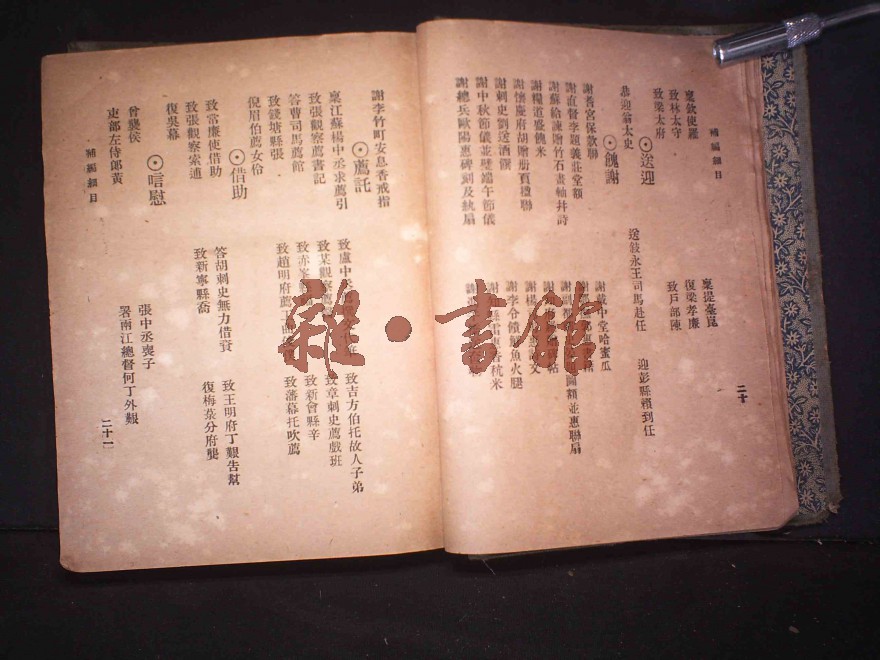 補編細目
二十
稟欽使羅
稟提臺崑
致林太守
復梁孝廉
致梁太府
致戶部陳
⊙送迎
送敍永王司馬赴任
迎彭縣賴到任
恭迎翁太史
⊙餽謝
謝普宮保敬聯
謝戴中堂哈蜜瓜
謝直督李題義莊堂額
謝蘇給諫贈竹石畫軸幷詩
謝糧道盛餽米
謝懷慶府胡贈册頁楹聯
謝李令餽鱘魚火腿
謝刺史劉送酒饌
謝中秋節儀並璧端午節儀
謝總兵歐陽惠碑刻及紈扇
謝李竹町安息香戒指
⊙薦託
稟江蘇楊中丞求薦引
致吉方伯托故人子弟
致張觀察薦書記
致章刺史薦戲班
答曹司馬薦館
致新會縣辛
致錢塘縣張
致藩幕托吹薦
倪眉伯薦女伶
⊙借助
致常廉使借助
致王明府丁艱告幫
致張觀察索逋
答胡刺史無力借貲
復梅菉分府龔
復吳幕
致新寧縣喬
⊙唁慰
曾襲侯
張中丞喪子
吏部左侍郎黃
署南江總督何丁外艱
補編細目
二十一
雜·書館